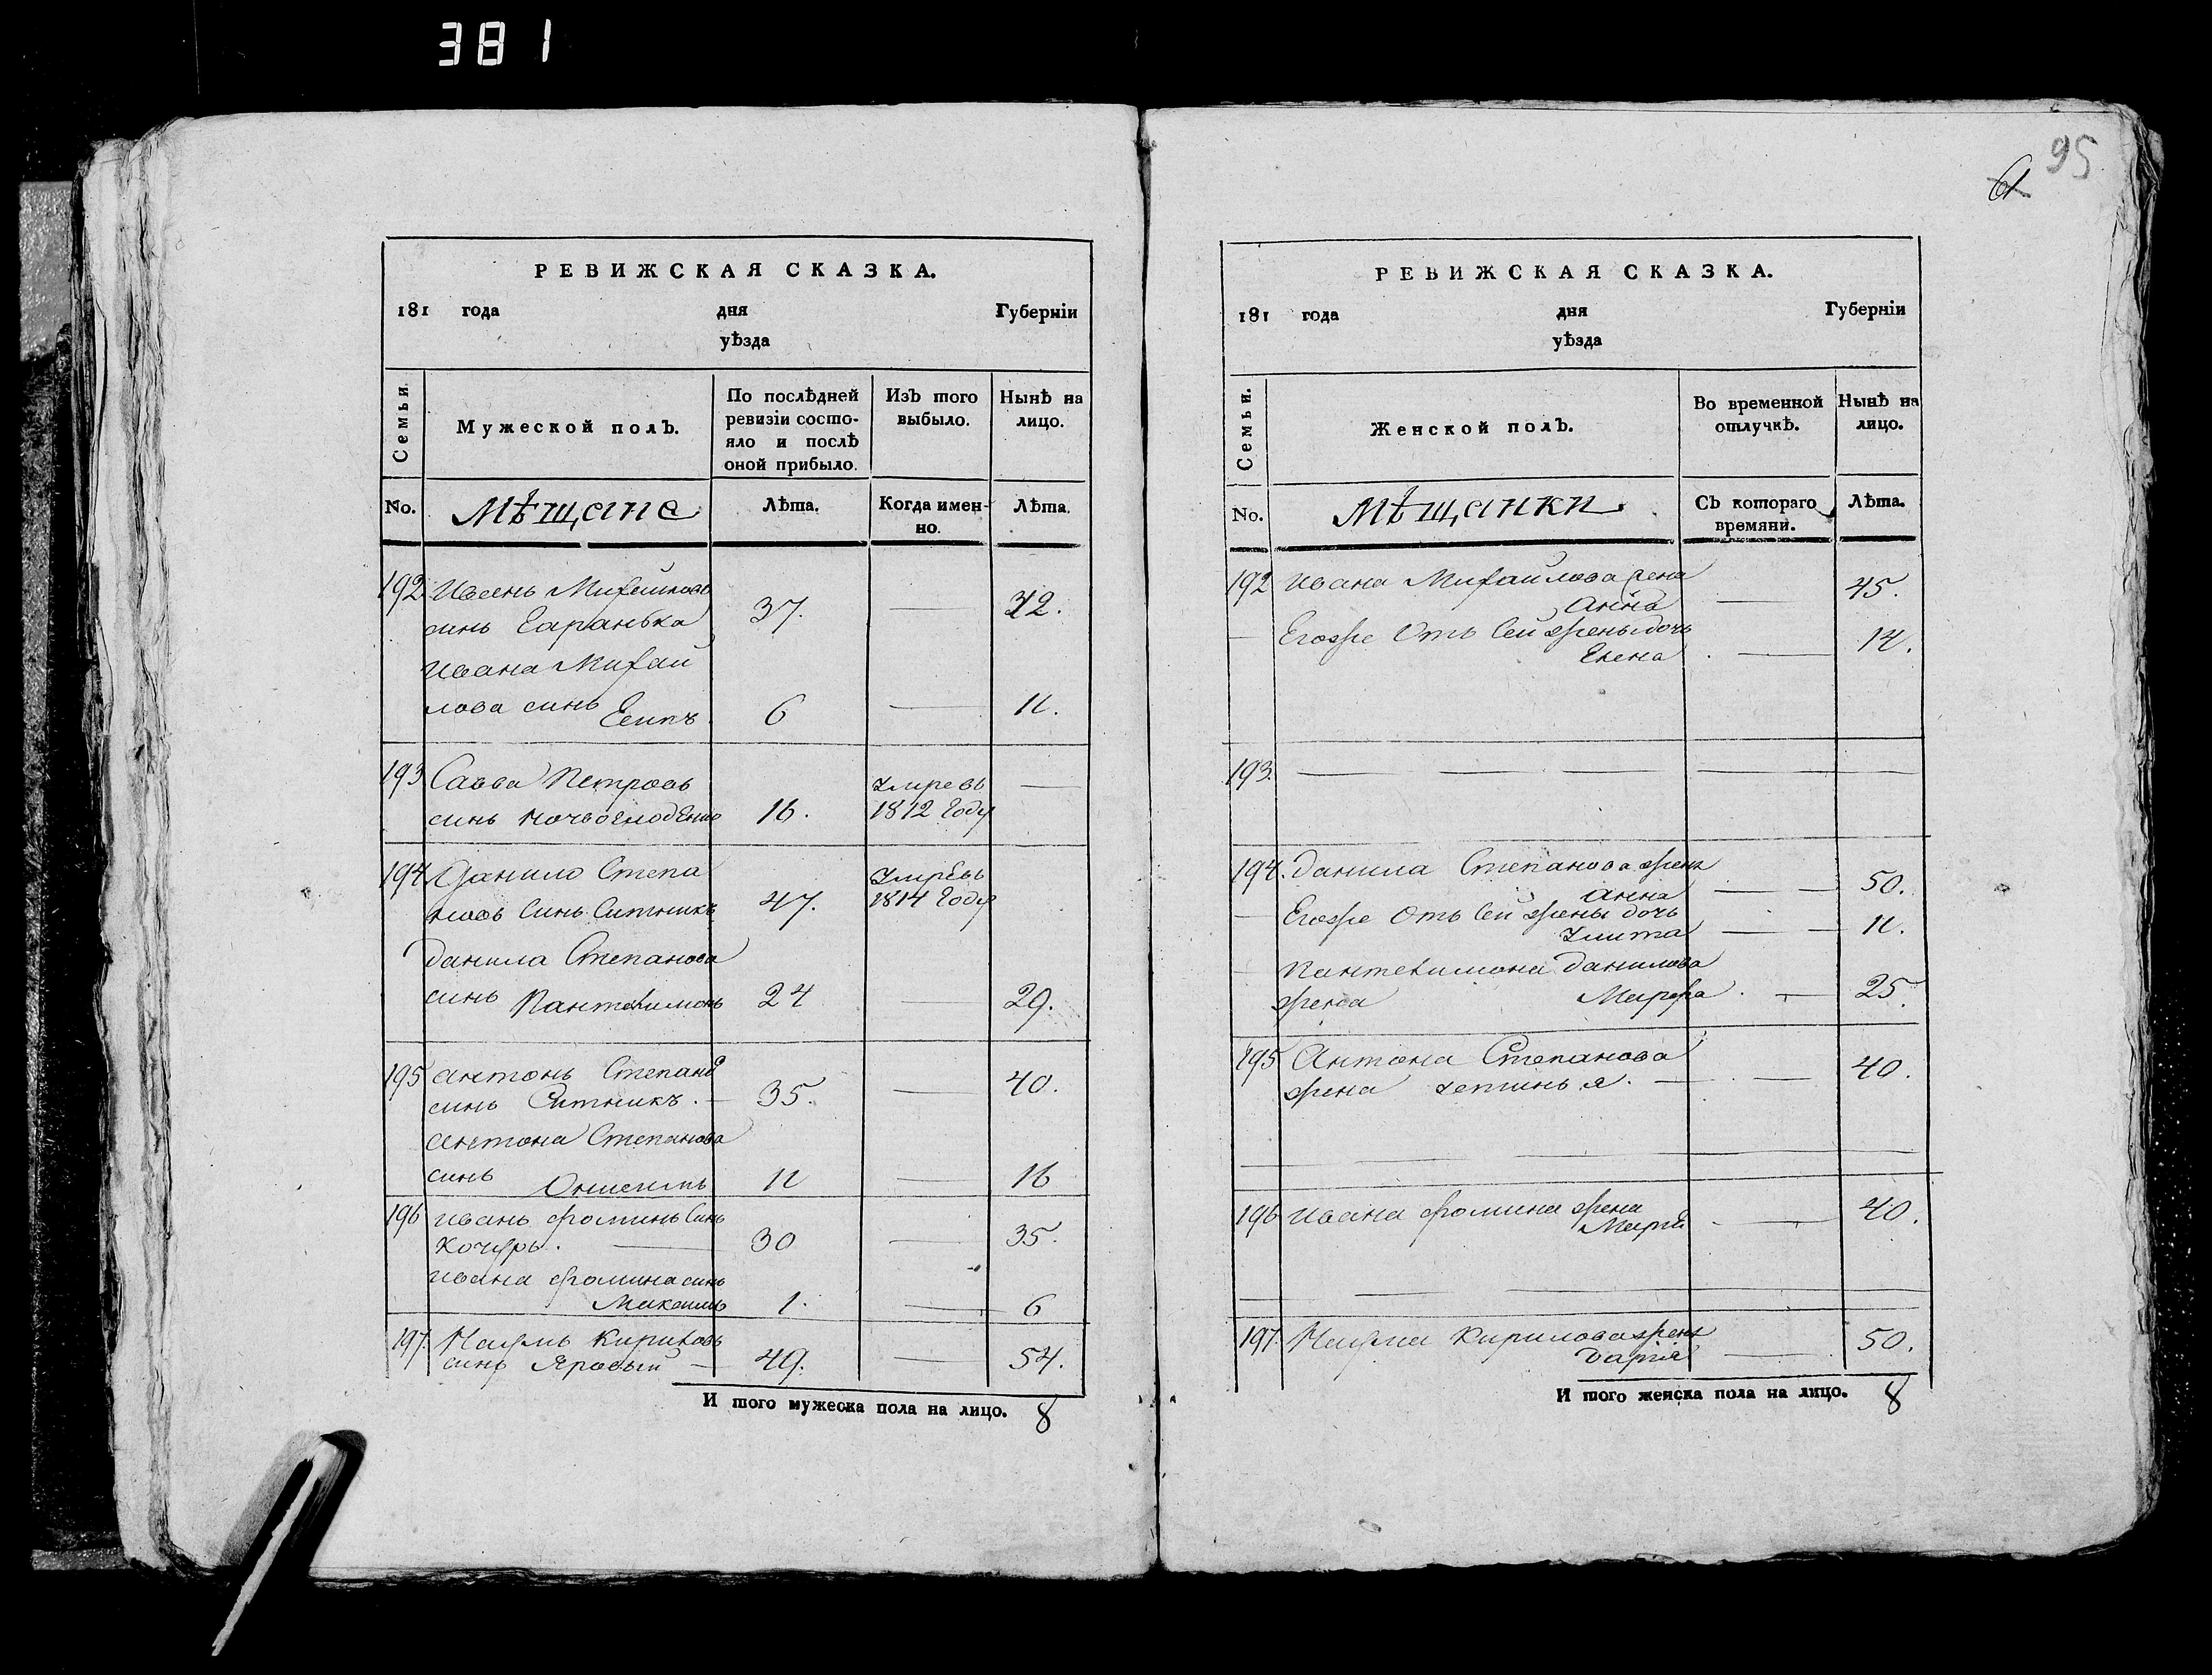 381
95
61
РЕВИЖСКАЯ СКАЗКА.
181 года дня Губерніи
уѣзда
Семьи
Мужеской полъ.
По послѣдней ревизіи состо-
яло и послѣ
оной прибыло.
Изъ того выбыло.
Нынѣ на лицо.
No.
Мѣщане
Лѣта.
Когда имен-
но.
Лѣта.
192 Иванъ Михайловъ
синъ Таранька 37. — 42.
Ивана Михай
лова синъ Есипъ 6 — 11.
193 Савва Петровъ умревъ —
синъ 16. 1812 году
194 Данило Степа умревъ
новъ Синъ Ситникъ 47. 1814 году
Данила Степанова
синъ Пантелимонъ 24 — 29.
195 Антонъ Степано
синъ Ситникъ. — 35. — 40.
Антона Степанова
синъ 11 — 16
196 Иванъ Фоминъ Синъ
30 — 35.
Ивана Фомина синъ
Макаимъ 1. — 6
197. Наумъ Кириловъ
синъ Яровый — 49. — 54.
И того мужеска пола на лицо. 8
РЕВИЖСКАЯ СКАЗКА.
181 года дня Губерніи
уѣзда
Семьи.
Женской полъ.
Во временной
отлучкѣ.
Нынѣ на
лицо.
No.
Мѣщанки
Съ котораго
времяни.
Лѣта.
192 Ивана Михайлова жена
Анна — 45.
— Егожъ Отъ Сей жены дочь
Елена — 14.
193. — — — — —
194. Данила Степанова жена
Анна — 50.
— Егожъ Отъ Сей жены дочь
Улита — 11.
— Пантелимона Данилова
жена Марфа — 25.
195 Антона Степанова
жена Устинья. — 40.
196 Ивана Фомина жена
Марія — 40.
197. Наума Кирилова жена
Дарія — 50.
И того женска пола на лицо. 8